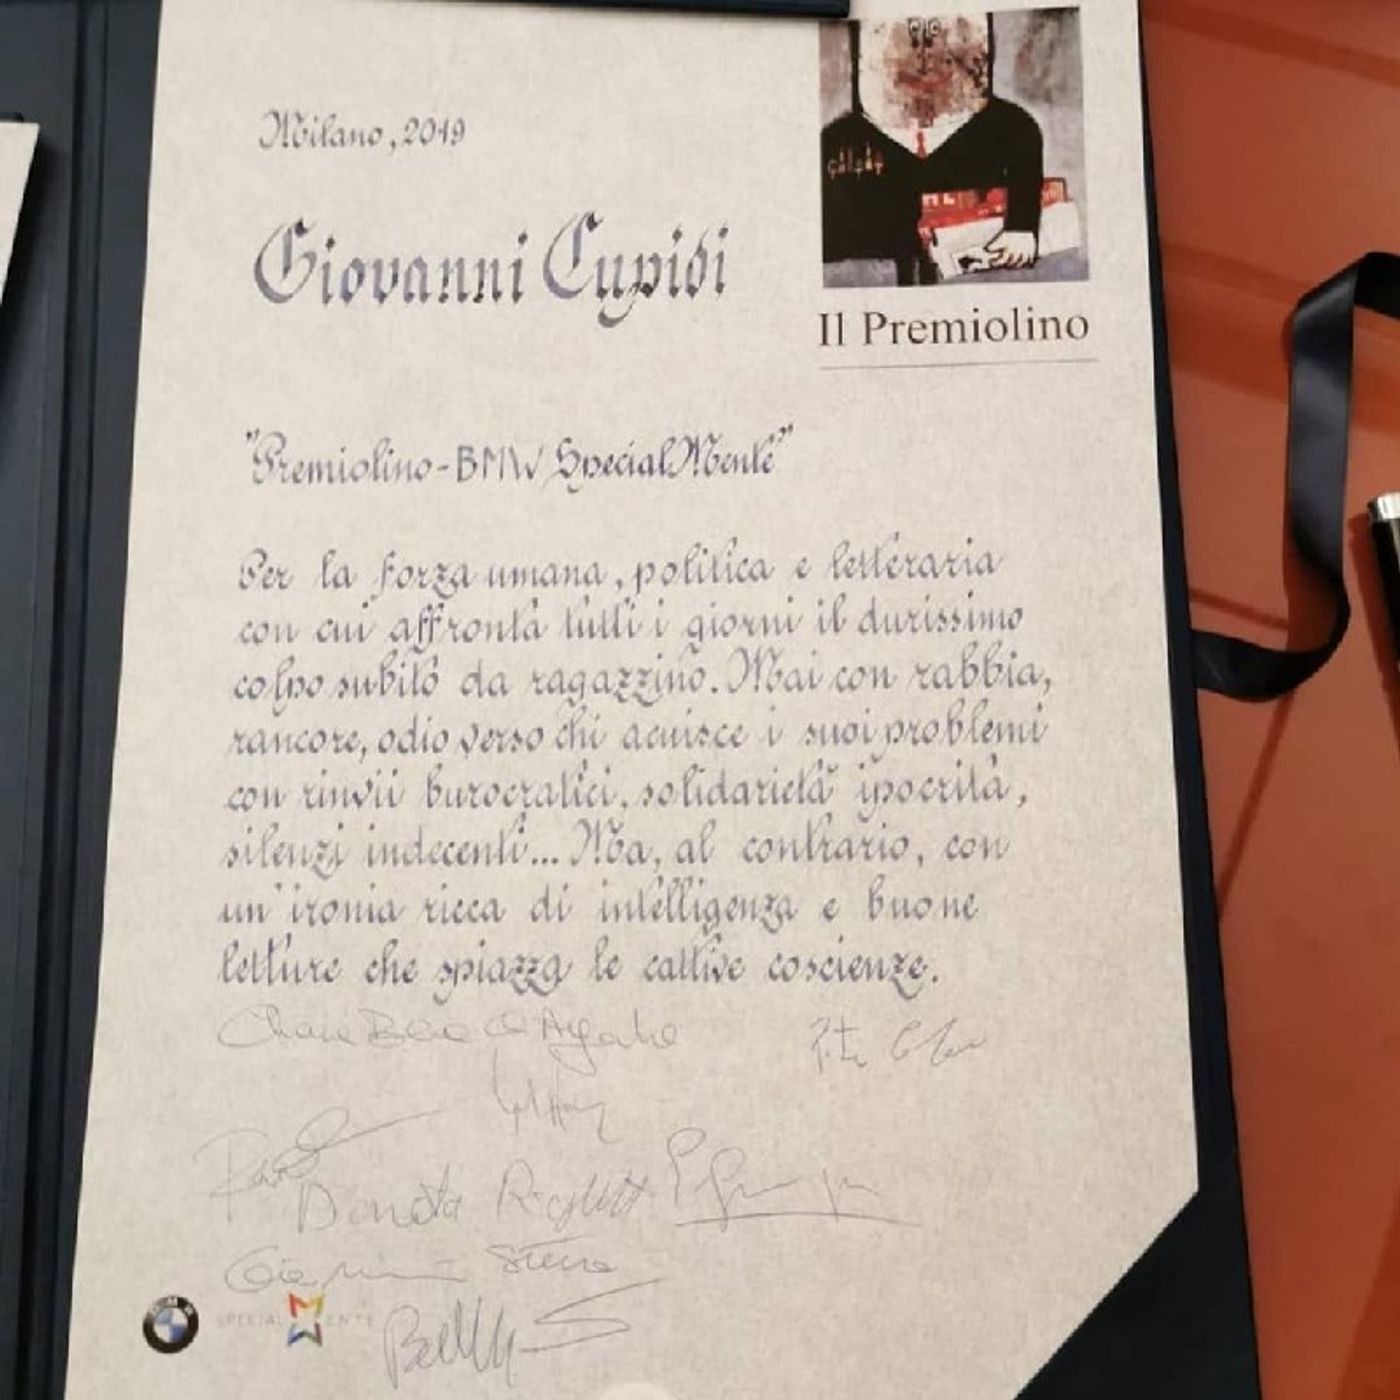 Milano, 2019
Giovanni Cupidi
Il Premiolino
"Premiolino-BMW SpecialMente"
Per la forza umana, politica e letteraria
con cui affronta tutti i giorni il durissimo
colpo subito da ragazzino. Mai con rabbia,
rancore, odio verso chi acuisce i suoi problemi
con rinvii burocratici, solidarietà ipocrita,
silenzi indecenti... Ma, al contrario, con
un'ironia ricca di intelligenza e buone
letture che spiazza le cattive coscienze.
Donata Righetti
BMW SPECIAL MENTE